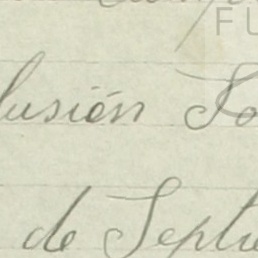 FU
lusión To
de Septie